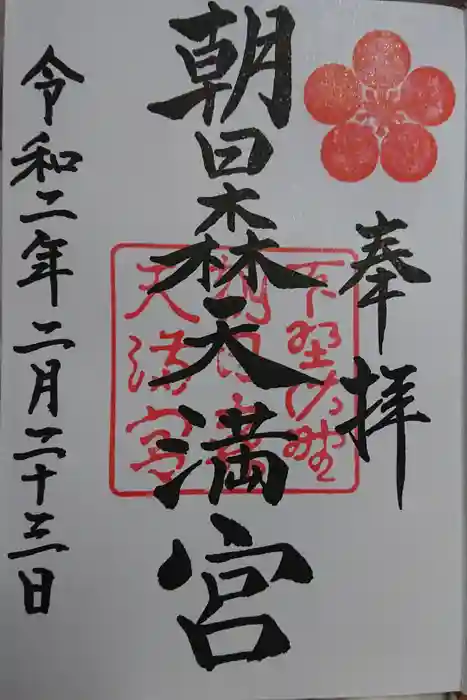 奉拝
朝日森天満宮
下野佐野
朝日森
天満宮
令和二年二月二十三日